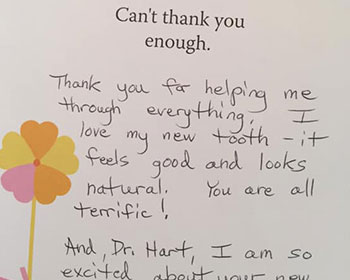 Can't thank you
enough.
Thank you for helping me
through everything. I
love my new tooth - it
feels good and looks
natural. You are all
terrific!
And, Dr. Hart, I am so
excited about your new